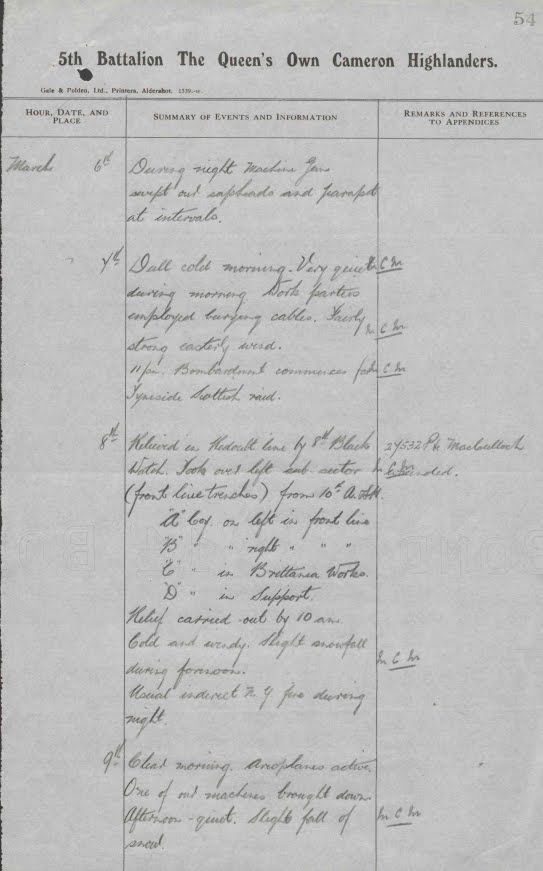 54
5th Battalion The Queen's Own Cameron Highlanders.
Gale & Polden, Ltd., Printers, Aldershot.
HOUR, DATE, AND PLACE
SUMMARY OF EVENTS AND INFORMATION
REMARKS AND REFERENCES TO APPENDICES
March 6th During night Machine Guns
swept our sapheads and parapet
at intervals.
7th Dull cold morning. Very quiet
during morning. Work parties
employed burying cables. Fairly
strong easterly wind.
11 pm. Bombardment commences for
Tyneside Scottish raid.
8th Relieved in Redoubt line by 8th Black 24532 Pte MacCulloch
Watch. Took over left sub. sector wounded.
(front line trenches) from 10th A.&S.H.
"A" Coy. on left in front line
"B" " " right " " "
"C" " in Brittania Works.
"D" " in Support.
Relief carried out by 10 am.
Cold and windy. Slight snowfall
during forenoon.
Usual indirect M.G. fire during
night.
9th Clear morning. Aeroplanes active.
One of our machines brought down.
Afternoon - quiet. Slight fall of
snow.